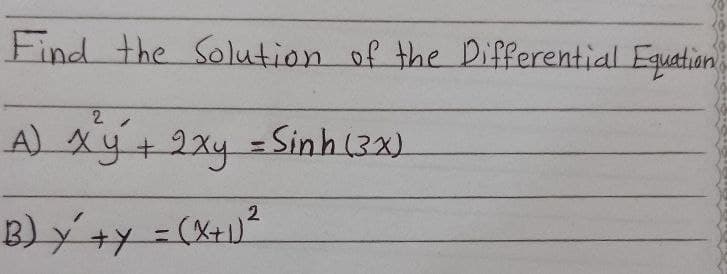 Find the Solution of the Differential Equation
A) x²y′ + 2xy = Sinh(3x)
B) y′ + y = (x+1)²